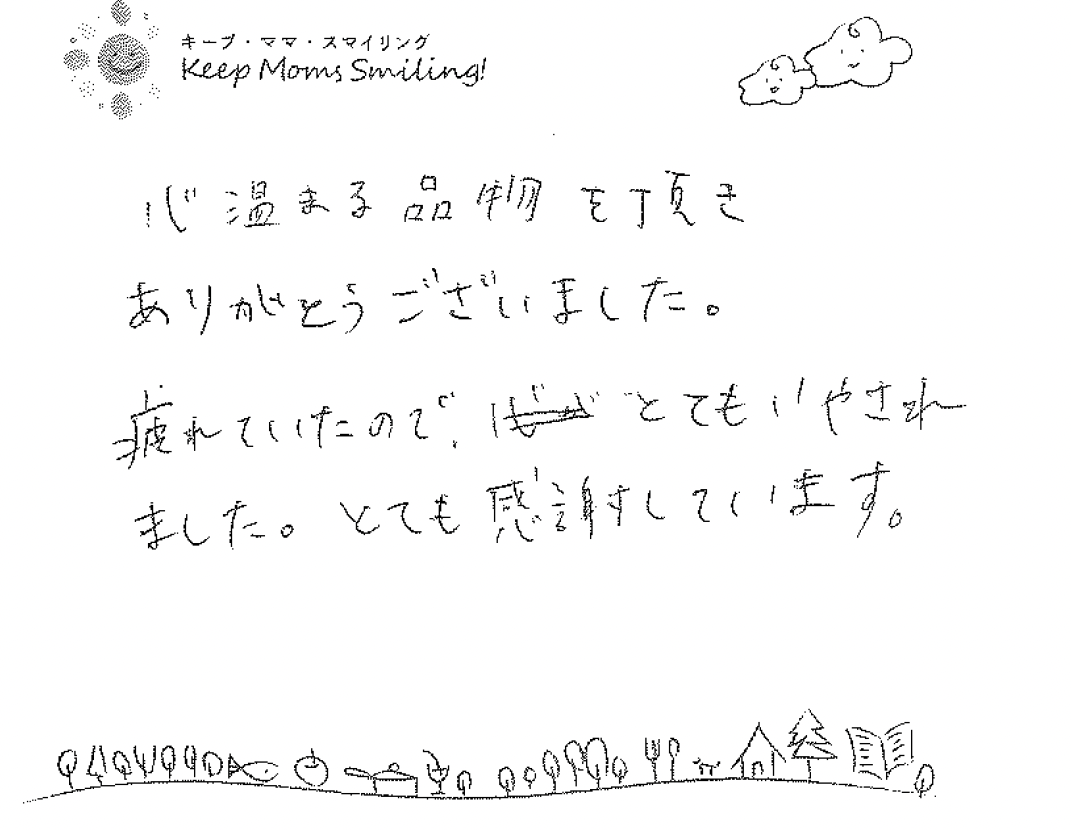 キープ・ママ・スマイリング
Keep Moms Smiling!
心温まる品物を頂き
ありがとうございました。
疲れていたので、とてもいやされ
ました。とても感謝しています。